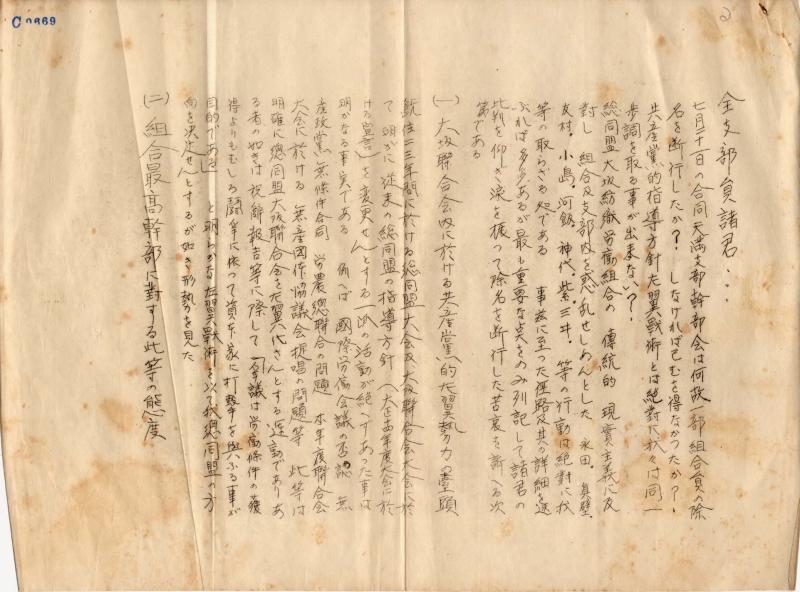 C 0869
2
全支部員諸君・・・
七月二十一日の合同天満支部幹部会は何故一部組合員の除
名を断行したか?. しなければ已むを得なかつたか?.
共産党的指導方針左翼戦術とは絶対に我々は同一
歩調を取る事が出来ない?.
総同盟大坂紡織労働組合の 傳統的 現実主義に反
対し 組合及支部内を惑乱せしめんとした 永田. 真壁.
友村. 小島. 河銘. 神代. 紫. 三井. 等の行動は絶対に我
等の取らざる処である 事茲に至つた経路及其の詳細を述
ぶれば多々あるが最も重要な点をのみ列記して諸君の
批判を仰ぎ涙を振って除名を断行した苦衷を訴へる次
第である
(一) 大坂聯合会内に於ける共産党的左翼勢力の台頭
統 二三年間に於ける総同盟大会及大坂聯合会大会に於
て 明かに従来の総同盟の指導方針 (大正十四年度大会に於
ける宣言)を変更せんとする一派の活動が絶へずあった事は
明かなる事実である 例へば 國際労働会議の否認 無
産政党無條件合同 労農總聯合の問題 本年度聯合会
大会に於ける 無産團体協議会提唱の問題等 此等は
明確に總同盟大坂聯合会を左翼化さんとする運動でありあ
る者の如きは 報告等に際して「爭議は労働條件の獲
得よりもむしろ闘爭に依って資本家に打撃を与ふる事が
目的である」と明らかな左翼戦術を以て我總同盟の方
向を決定せんとするが如き形勢を見た
(二) 組合最高幹部に對する此等の態度